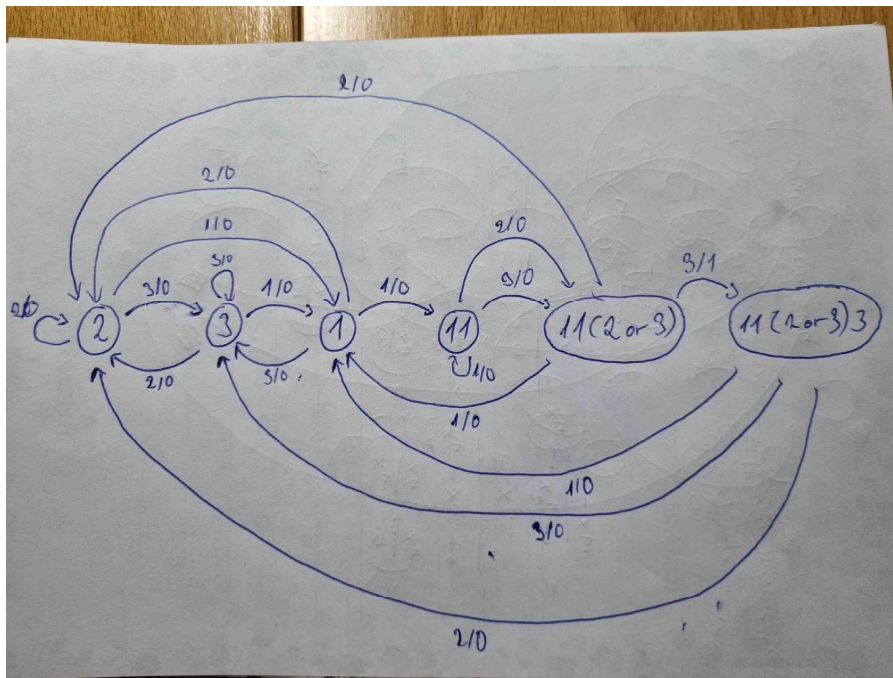 2/0
2/0
1/0
3/0
2/0
3/0
1/0
1/0
2/0
3/0
3/1
2
3
1
11
11(2 or 3)
11(2 or 3)3
2/0
3/0
1/0
1/0
1/0
3/0
2/0